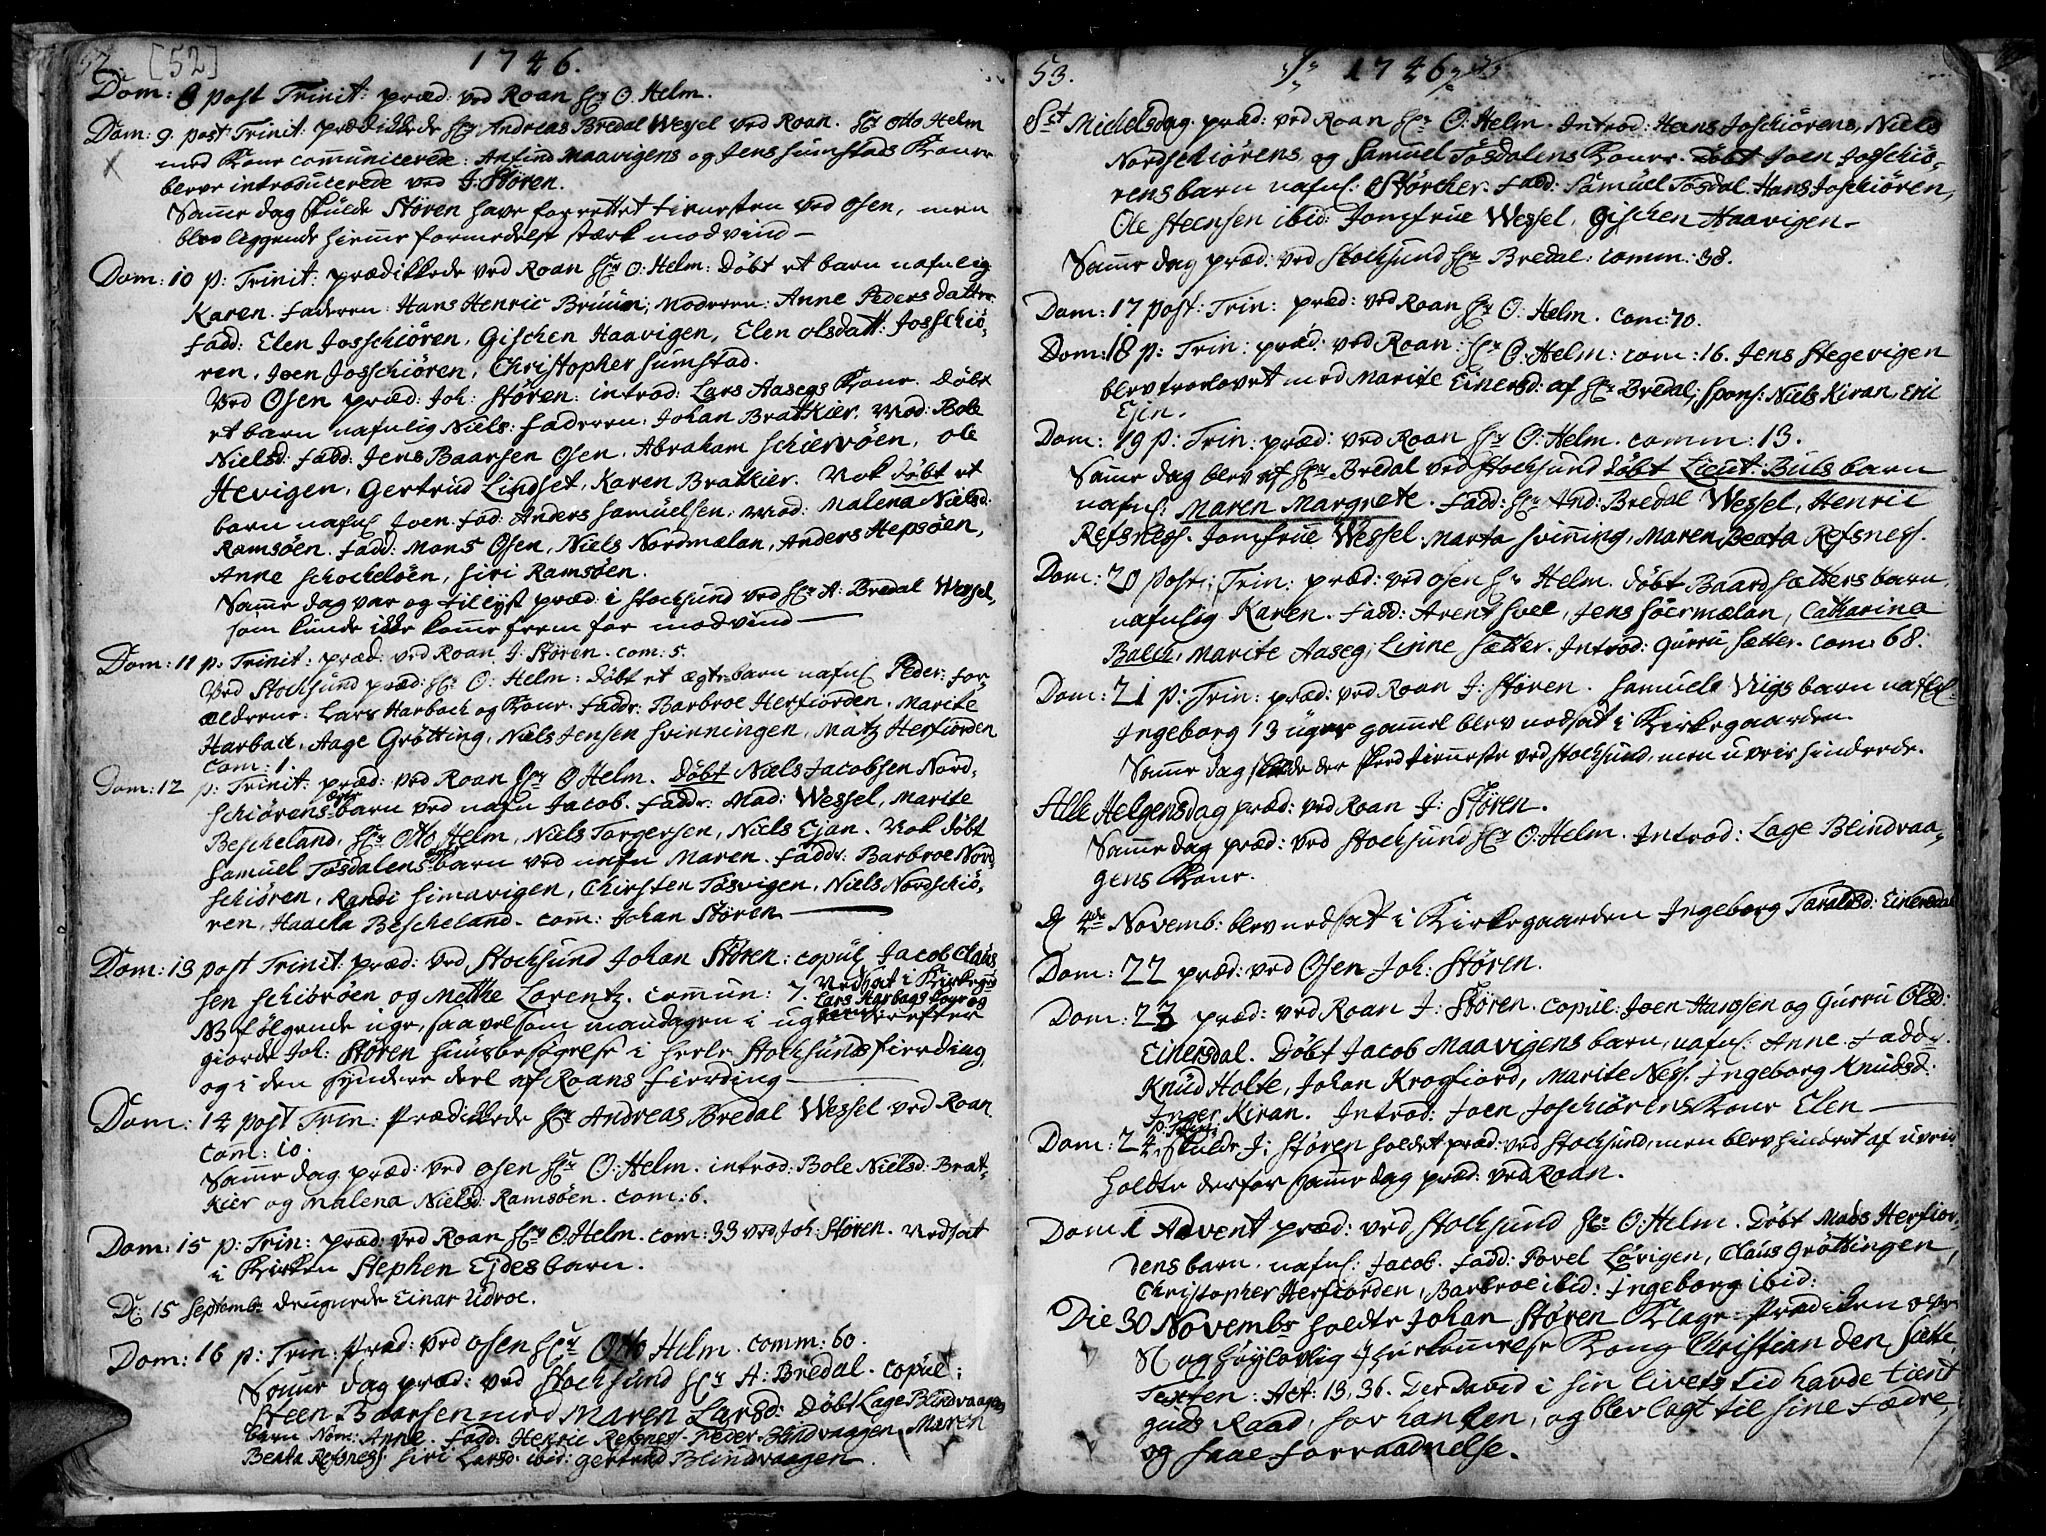 52. [52] 1746.
Dom: 8 post Trinit: præd: ved Roan Hr O. Helm.
Dom: 9. post Trinit: prædikkede Hr Andreas Bredal Wessel ved Roan. Hr Otto Helm
med Kone communicerede. Anfind Maavigens og Jens Sumstads Koner
bleve introducerede ved J: Stören.
Samme dag skulde Stören have forrettet tienesten ved Osen, men
blev liggende hiemme formedelst stærk modvind —
Dom: 10 p: Trinit: prædikkede ved Roan Hr O: Helm: Döbt et barn nafnlig
Karen. Faderen: Hans Henric Bruun; Moderen: Anne Pedersdatter
Fadd: Elen Josschiören, Gischen Haavigen, Elen Olsdatt: Josschiö-
ren, Joen Josschiören, Christopher Sumstad.
Ved Osen præd: Joh: Stören: introd: Lars Aasegs Kone. Döbt
et barn nafnlig Niels: Faderen: Johan Bratkier. Mod: Bole
Nielsd: Fadd: Jens Baarsen Osen, Abraham Schiervöen, Ole
Hevigen, Gertrud Lindset, Karen Bratkier. Nok döbt et
barn nafnl Joen. Fad: Anders Samuelsen; Mod: Malena Nielsd:
Ramsöen. Fadd: Mons Osen, Niels Nordmælan, Anders Hepsöen,
Anne Schockelöen, Siri Ramsöen.
Samme dag var og tillyst præd: i Stocksund ved Hr A: Bredal Wessel,
som kunde ikke komme frem for modvind —
Dom: 11 p: Trinit: præd: ved Roan J. Stören. com: 5.
Ved Stocksund præd: Hr O: Helm: Döbt et ægte barn nafnl Peder: For-
ældrene: Lars Harbach og Kone. Faddr: Barbroe Herfiorden, Marite
Harback, Aage Grötting, Niels Jensen Svinningen, Matz Herfiorden
Com: 1.
Dom: 12 p: Trinit: præd: ved Roan Hr O Helm. Döbt Niels Jacobsen Nord-
schiörens ægte barn ved nafn Jacob. Faddr: Mad: Wessel, Marite
Bescheland, Hr Otto Helm, Niels Torgersen, Niels Ejan. Nok döbt
Samuel Tösdalens ægte barn ved nafn Maren. Faddr: Barbroe Nord-
schiören, Randi Simavigen, Chirsten Tösvigen, Niels Nordschiö-
ren, Haacka Bescheland. Com: Johan Stören —
Dom: 13 post Trinit: præd: ved Stocksund Johan Stören: copul Jacob Claus
sen Schiöröen og Methe Lorentz. commun: 7. Nedsat i Kirkegrd
Lars Harbags Toge og
barn
NB følgende uge, saavelsom mandagen i ugen derefter
giorde Joh: Stören huusbesögelse i heele Stocksunds Fierding
og i den syndere deel af Roans Fierding —
Dom: 14 post Trin: Prædikkede Hr Andreas Bredal Wessel ved Roan
Com: 10.
Samme dag præd: ved Osen Hr O: Helm. introd: Bole Nielsd: Brat-
kier og Malena Nielsd: Ramsöen. Com: 6.
Dom: 15 p: Trin: præd: ved Roan Hr O: Helm. com: 33 ved Joh: Stören. Nedsat
i Kirken Stephen Ejdes barn.
D: 15 Septembr drugnede Einar Udroe.
Dom: 16 p: Trin: præd: ved Osen Hr Otto Helm. comm: 60.
Samme dag præd: ved Stocksund Hr A: Bredal. copul:
Steen Baarsen med Maren Larsd: Döbt Lage Blindvaagens
barn Nom: Anne. Fadd: Henric Refsnes. Peder Blindvaagen, Maren
Beata Refsnes. Siri Larsd: ibid: Gertrud Blindvaagen.
53. 1746
Sct Michelsdag. præd: ved Roan Hr O: Helm. Introd: Hans Joschiörens, Niels
Nordschiörens, og Samuel Tösdalens Koner. Döbt Joen Josschiö-
rens barn nafnl: Störcher. Fadd: Samuel Tösdal. Hans Joschiören,
Ole Steensen ibid: Jomfrue Wessel, Gischen Haavigen —
Samme dag præd: ved Stocksund Hr Bredal: comm: 38.
Dom: 17 post: Trin: præd: ved Roan Hr O: Helm. Com: 70.
Dom: 18 p: Trin: præd: ved Roan: Hr O: Helm: com: 16. Jens Stegevigen
blev trolovet med Marite Einersd: af Hr Bredal; Spons: Niels Kiran, Eric
Ejen.
Dom: 19 p: Trin: præd: ved Roan Hr O: Helm. comm: 13.
Samme dag blev af Hr Bredal ved Stocksund döbt Lieut: Buls barn
nafnl: Maren Margrete. Fadd: Hr And: Bredal Wessel, Henric
Refsness. Jomfrue Wessel. Marta Svinning, Maren Beata Refsness.
Dom: 20 post: Trin: præd: ved Osen Hr Helm. Döbt Baard Sætters barn
nafnlig Karen. Fadd: Arent Svee, Jens Söermælan, Catharina
Balch, Marite Aaseg, Linne Sætter. Introd: Gurru Sætter. Com: 68:
Dom: 21 p: Trin: præd: ved Roan J: Stören. Samuels Viigs barn nafnl:
Ingeborg 13 uger gamel blev nedsat i Kirkegaarden.
Samme dag skulde der skeed tieneste ved Stocksund, men uveir hinderede.
Alle Helgensdag præd: ved Roan J: Stören.
Samme dag præd: ved Stocksund Hr O: Helm. Introd: Lage Blindvaa-
gens Kone.
D 4de Novemb: blev nedsat i Kirkegaarden Ingeborg Taraldsd: Einersdal
Dom: 22 præd: ved Osen Joh: Stören.
Dom: 23 præd: ved Roan J: Stören. Copul: Joen Hansen og Gurru Olsd:
Einersdal. Döbt Jacob Maavigens barn, nafnl: Anne. Faddr.
Knud Holte, Johan Krogfiord, Marite Ness. Ingeborg Knudsd:
Inger Kiran. Introd: Joen Joschiörens Kone Elen —
Dom: 24 p. Trinit: skulde J: Stören holdet præd: ved Stocksund, men blev hindret af uveir
holdte derfor samme dag præd: ved Roan.
Dom 1 Advent præd: ved Stocksund Hr O: Helm. Döbt Mads Herfior-
dens barn. nafnl: Jacob. Fadd: Povel Lövigen, Claus Gröttingen,
Christopher Herfiorden, Barbroe ibid: Ingeborg ibid:
Die 30 Novembr holdte Johan Stören Klage-Prædiken over
Sl og Höylovlig Ihukommelse Kong Christian den Siette
Texten: Act: 13, 36. Der David i sin livets tid havde tient
guds Raad, sov han hen, og blev lagt til sine Fædre,
og saae Forraadnelse.